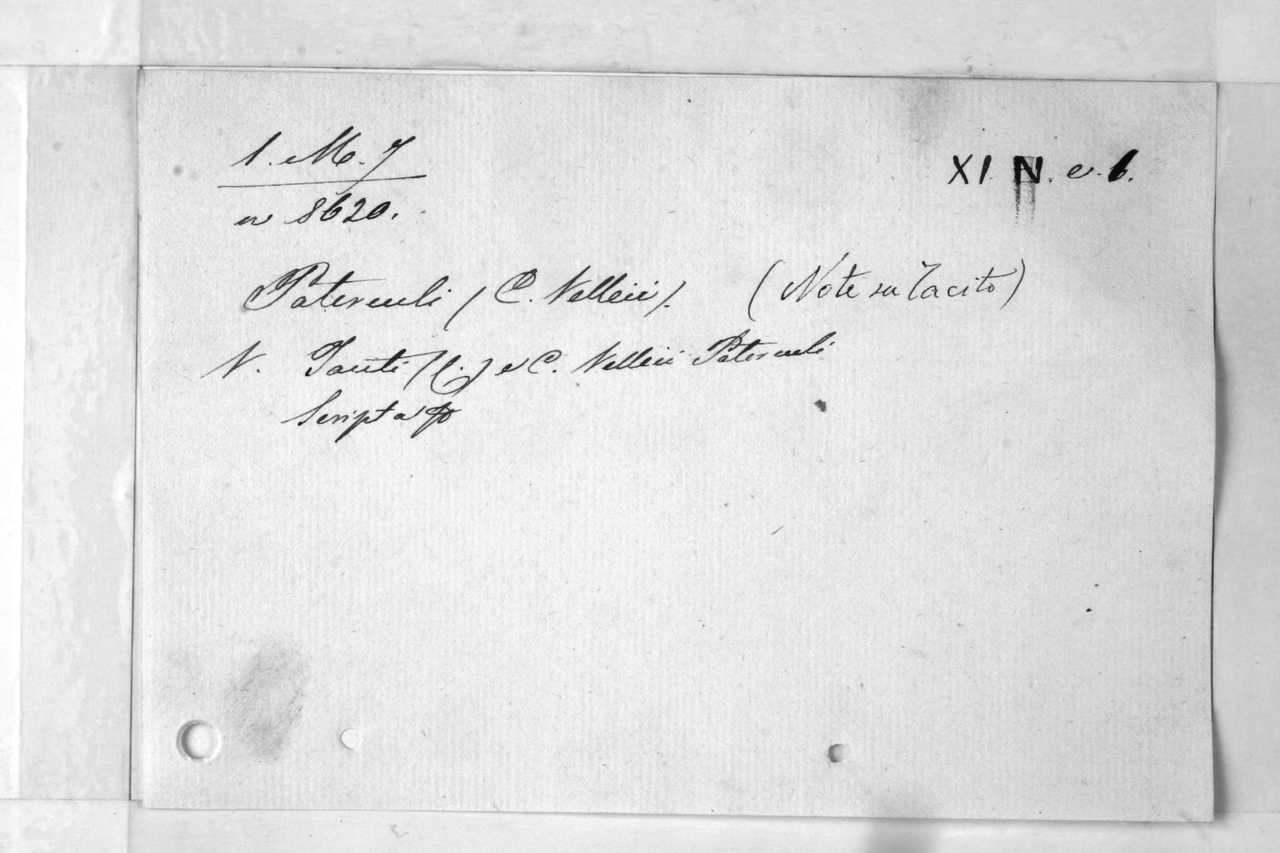 1. M. 7
XI N. e. 6.
n 8620.
Paterculi (C. Velleii). (Note su Tacito)
V. Taciti (C.) e C. Velleii Paterculi
Scripta